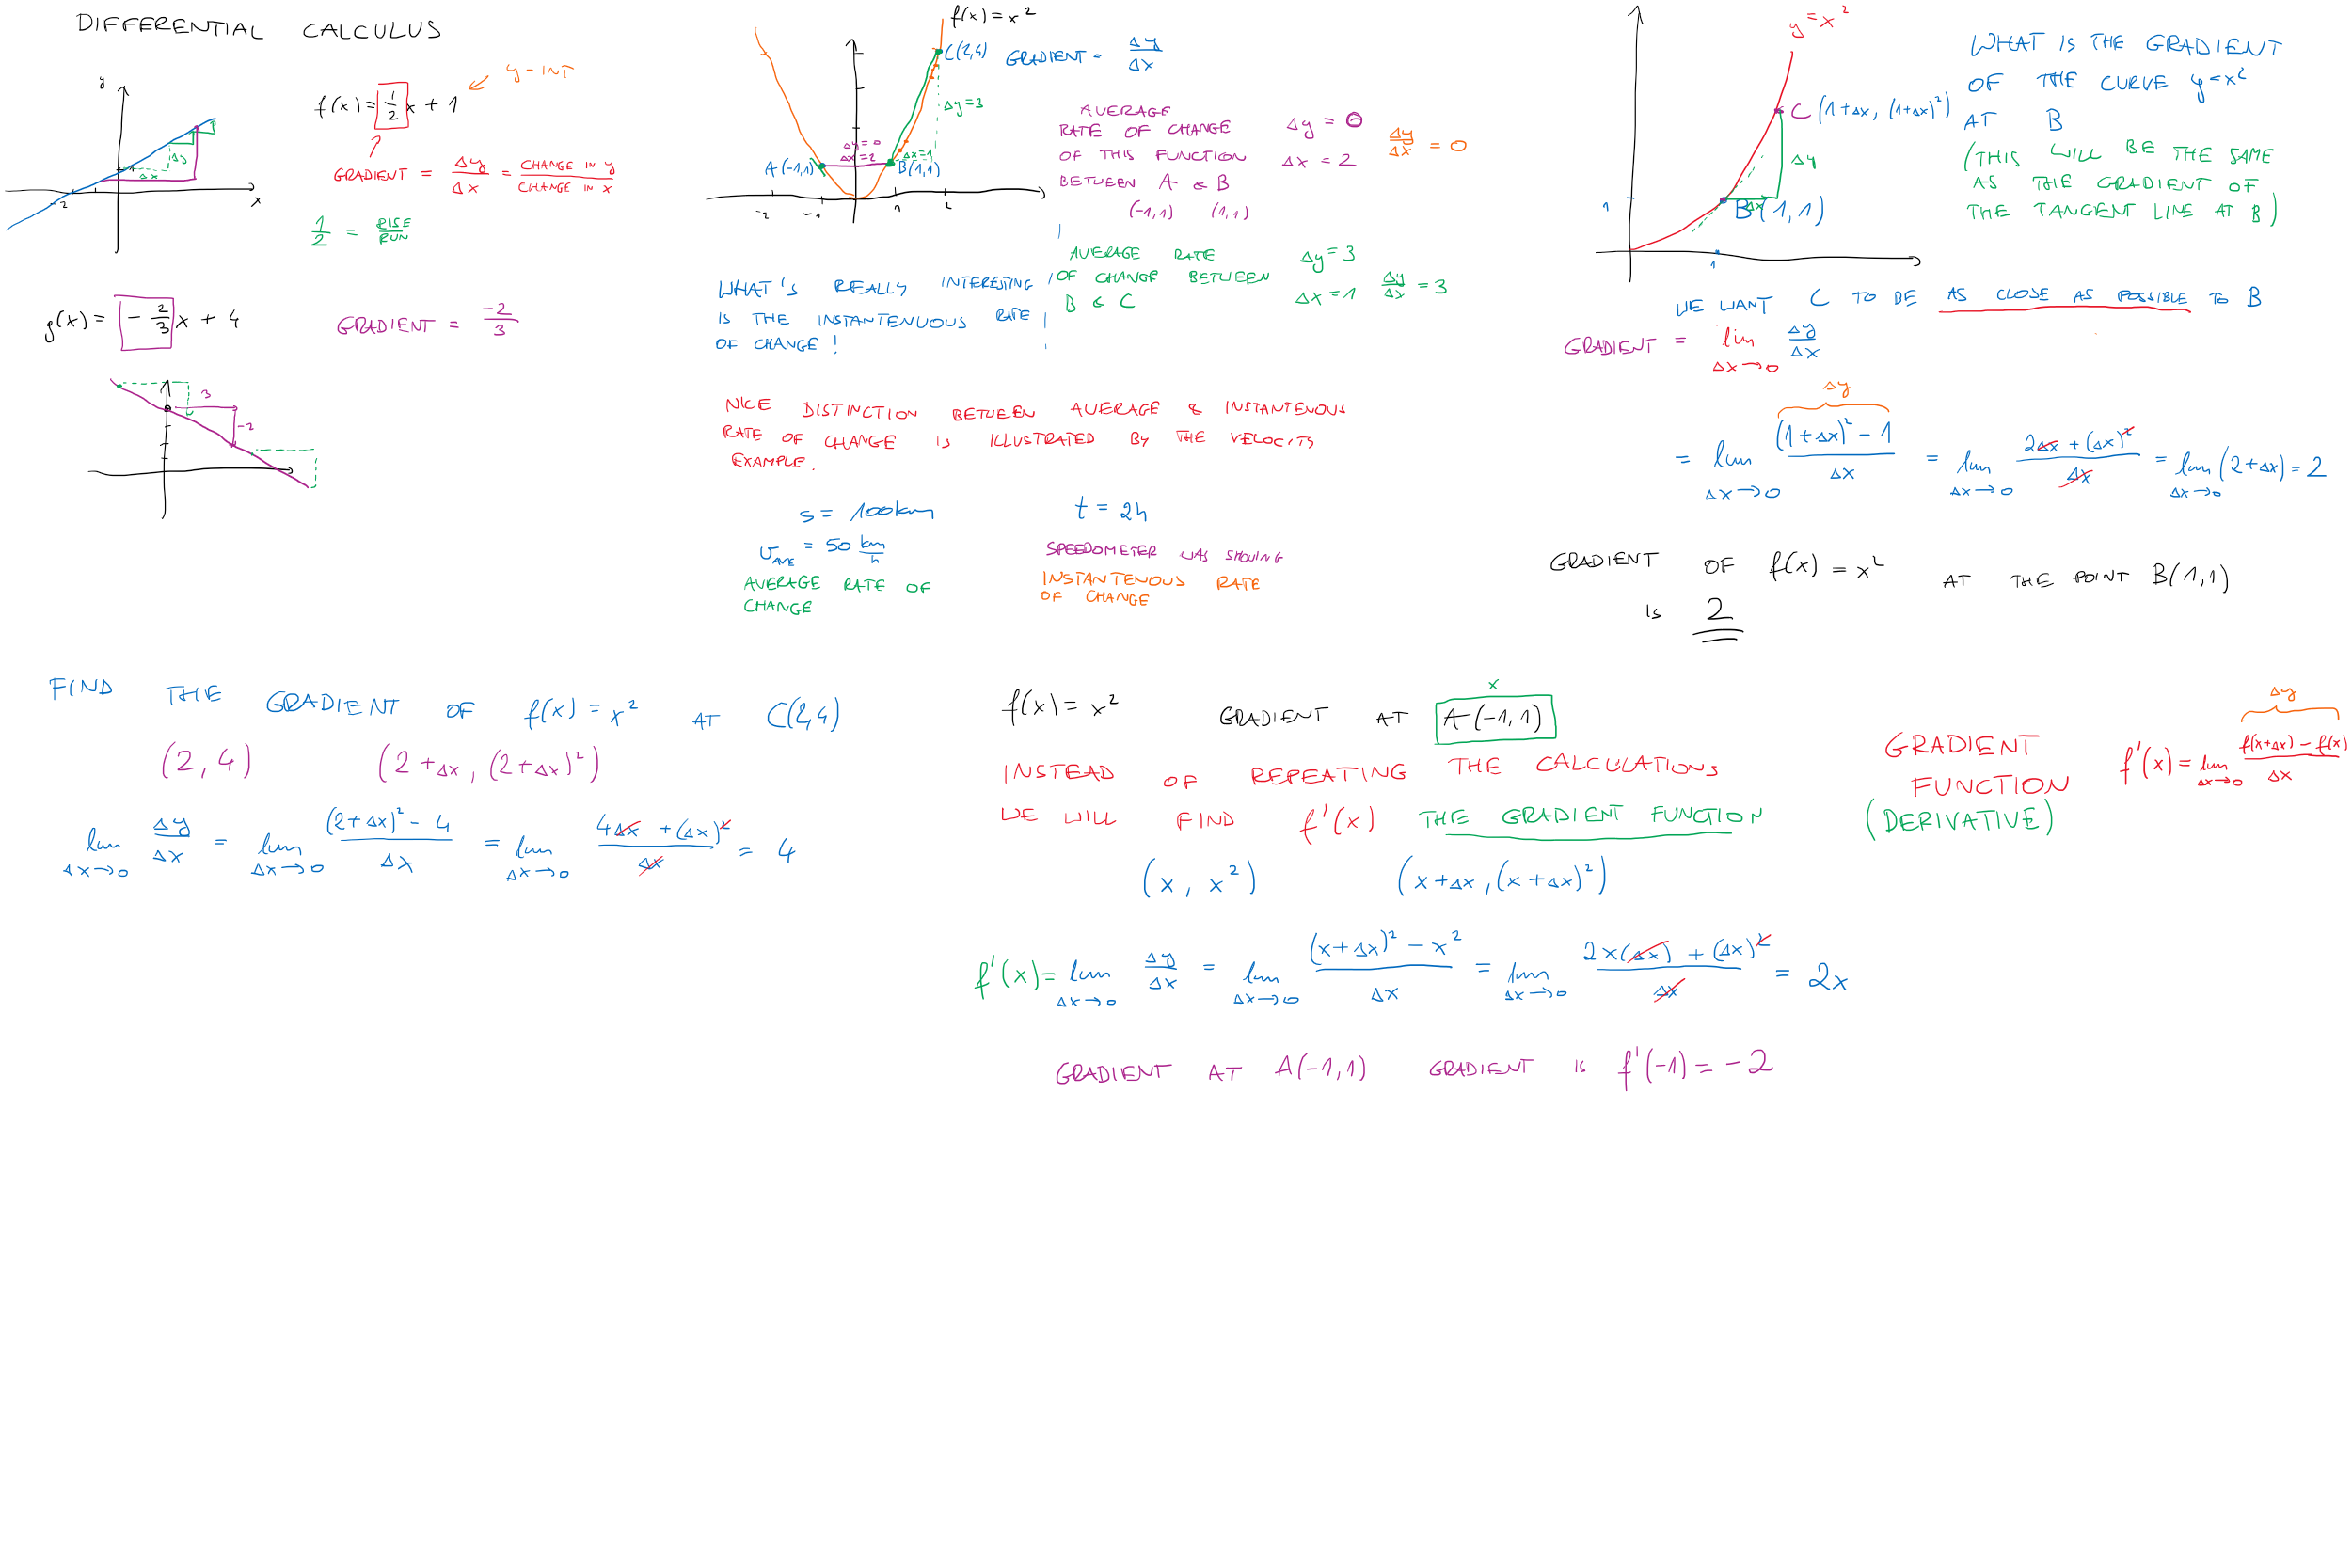 DIFFERENTIAL CALCULUS
y
x
-2
1
Δy
Δx
f(x) = 1/2 x + 1
y-INT
GRADIENT = Δy/Δx = CHANGE IN y/CHANGE IN x
1/2 = RISE/RUN
g(x) = -2/3 x + 4
GRADIENT = -2/3
3
-2
f(x) = x²
C(2,4)
GRADIENT = Δy/Δx
Δy=3
Δy=0
Δx=2
Δx=1
A(-1,1)
B(1,1)
-2 -1 1 2
AVERAGE
RATE OF CHANGE
OF THIS FUNCTION
BETWEEN A & B
(-1,1) (1,1)
Δy = 0
Δx = 2
Δy/Δx = 0
AVERAGE RATE
OF CHANGE BETWEEN
B & C
Δy = 3
Δx = 1
Δy/Δx = 3
WHAT'S REALLY INTERESTING
IS THE INSTANTENUOUS RATE
OF CHANGE!
NICE DISTINCTION BETWEEN AVERAGE & INSTANTENOUS
RATE OF CHANGE IS ILLUSTRATED BY THE VELOCITY
EXAMPLE.
s = 100km
t = 2h
v_AVE = 50 km/h
SPEEDOMETER WAS SHOWING
AVERAGE RATE OF
CHANGE
INSTANTENOUS RATE
OF CHANGE
y = x²
C (1+Δx, (1+Δx)²)
Δy
Δx
B (1,1)
1
1
WHAT IS THE GRADIENT
OF THE CURVE y=x²
AT B
(THIS WILL BE THE SAME
AS THE GRADIENT OF
THE TANGENT LINE AT B)
WE WANT C TO BE AS CLOSE AS POSSIBLE TO B
GRADIENT = lim Δx→0 Δy/Δx
Δy
= lim Δx→0 ((1+Δx)² - 1)/Δx = lim Δx→0 (2Δx + (Δx)²)/Δx = lim Δx→0 (2+Δx) = 2
GRADIENT OF f(x) = x² AT THE POINT B(1,1)
IS 2
FIND THE GRADIENT OF f(x) = x² AT C(2,4)
(2,4) (2+Δx, (2+Δx)²)
lim Δx→0 Δy/Δx = lim Δx→0 ((2+Δx)² - 4)/Δx = lim Δx→0 (4Δx + (Δx)²)/Δx = 4
x
f(x) = x² GRADIENT AT A(-1,1)
INSTEAD OF REPEATING THE CALCULATIONS
WE WILL FIND f'(x) THE GRADIENT FUNCTION
(x, x²) (x+Δx, (x+Δx)²)
f'(x) = lim Δx→0 Δy/Δx = lim Δx→0 ((x+Δx)² - x²)/Δx = lim Δx→0 (2x(Δx) + (Δx)²)/Δx = 2x
GRADIENT AT A(-1,1) GRADIENT IS f'(-1) = -2
GRADIENT
FUNCTION
(DERIVATIVE)
Δy
f'(x) = lim Δx→0 (f(x+Δx) - f(x))/Δx